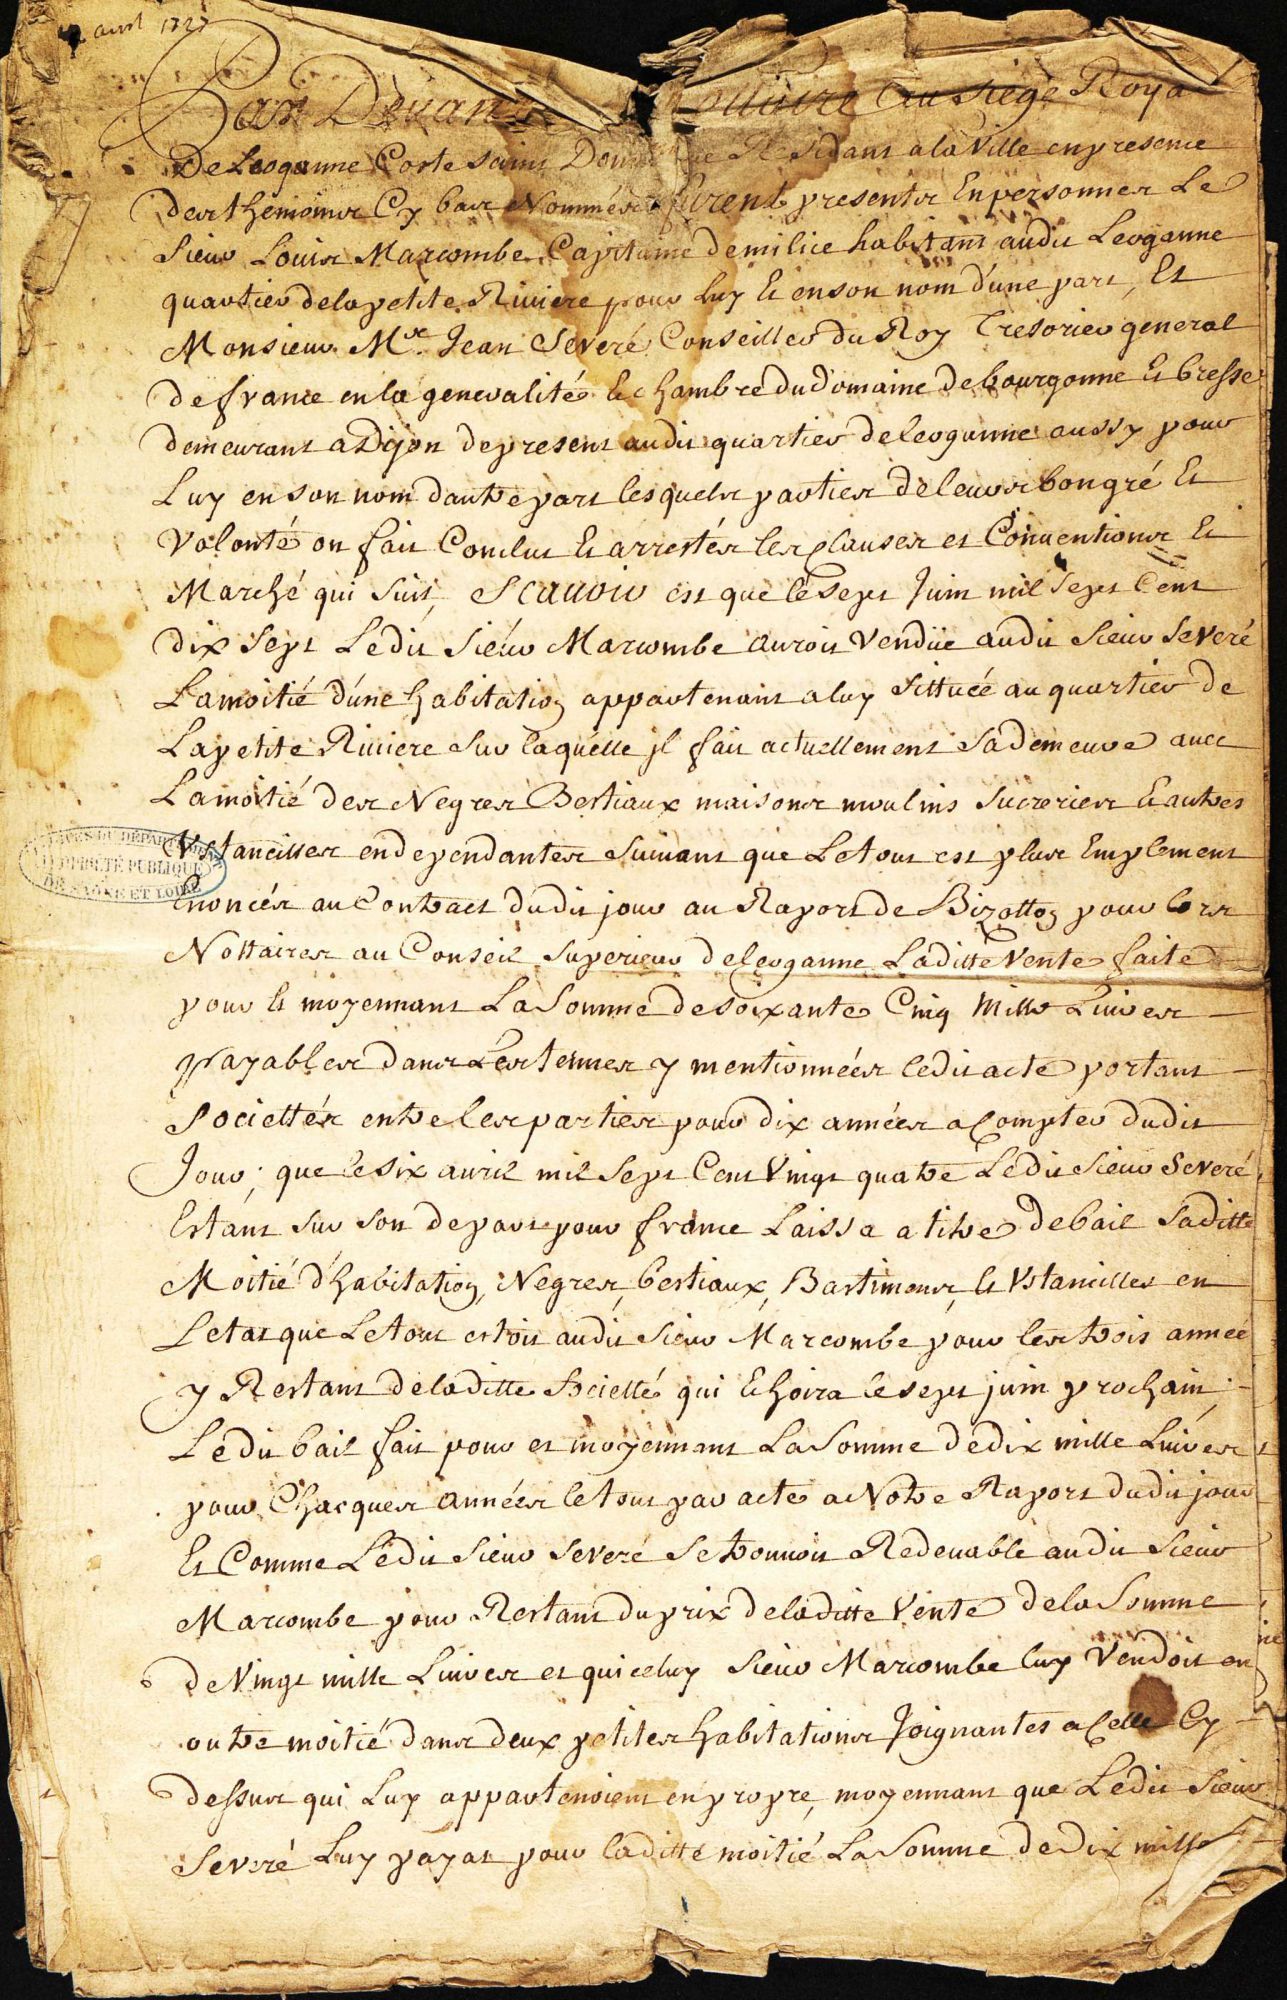 avril 1727
Par Devan Nottaire Au Siege Roya
De Leoganne Coste Saint Domingue Residant a la Ville en presence
des thémoins Cy bas Nommés furent presents En personnes Le
Sieur Louis Marcombe Capitaine de milice habitant audit Leoganne
quartier de la petite Riviere pour Luy Et en son nom d'une part, Et
Monsieur Mre Jean Severé Conseiller du Roy Tresorier general
de france en la generalité & Chambre du Domaine de bourgonne Et bresse
demeurant a Dijon de present audit quartier de leoganne aussy pour
Luy en son nom dautre part lesquels parties de leurs bon gré Et
Volonté on fait Conclut Et arrestés les Clauses et Conventions Et
Marché qui Suit, Scauoir est que le Sept Juin mil Sept Cent
dix Sept Ledit Sieur Marcombe auroit Vendüe audit Sieur Severé
La moitié d'une habitation appartenant a luy Sittuée au quartier de
La petite Riviere Sur laquelle jl fait actuellement Sa demeure avec
La moitié des Negres Bestiaux maisons moulins Sucreries Et autres
Vstancilles en dependantes Suivant que Le tout est plus Emplement
Enoncés au Contract dudit jour au Raport de Bizotton pour lors
Nottaires au Conseil Superieur de leoganne Laditte Vente faite
pour Et moyennant La Somme de soixante Cinq Mille Livres
payables dans Les termes y mentionnées ledit acte portant
Societtés entre les parties pour dix années a Compter dudit
Jour; que le Six avril mil Sept Cent Vingt quatre Ledit Sieur Severé
Estant Sur Son depart pour france Laissa a titre de bail Saditte
Moitié d'habitation, Negres, bestiaux, Bastimens, Et Vstancilles en
Letat que Le tout estoit audit Sieur Marcombe pour les trois année
y Restant de laditte Societté qui Echoira le sept juin prochain,
Ledit bail fait pour et moyennant La Somme de dix mille Livres
pour Chacques années le tout par acte a Notre Raport dudit jour
Et Comme Ledit Sieur Severé Se trouvoit Redeuable audit Sieur
Marcombe pour Restant du prix de laditte Vente de la Somme
de Vingt mille Livres et qui celuy Sieur Marcombe luy Vendoit en
outre moitié dans deux petites habitations Joignantes a Celle Cy
dessus qui Luy appartenoient en propre, moyennant que Ledit Sieur
Severé Luy payat pour laditte moitié La Somme de Dix mille